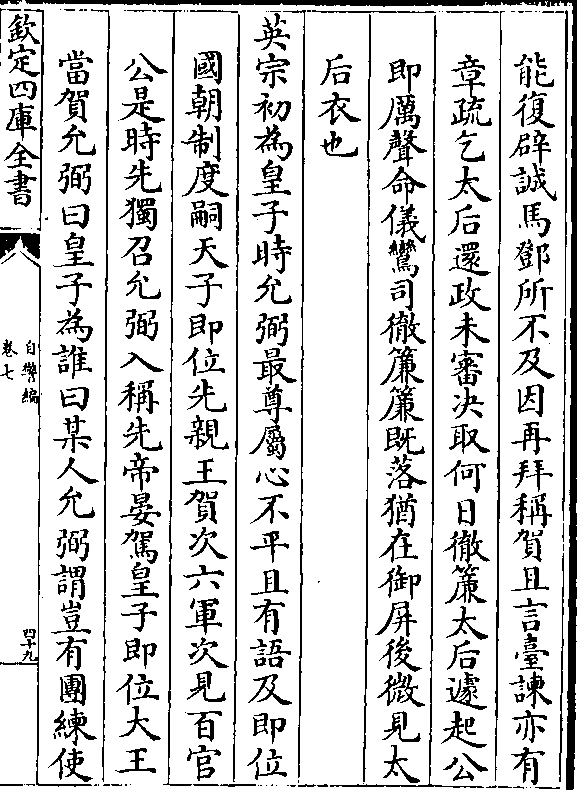 能復辟誠馬鄧所不及因再拜稱賀且言臺諫亦有
章疏乞太后還政未審决取何日徹簾太后遽起公
即厲聲命儀鸞司徹簾簾既落猶在御屏後微見太
后衣也
英宗初為皇子時允弼最尊屬心不平且有語及即位
國朝制度嗣天子即位先親王賀次六軍次見百官
公是時先獨召允弼入稱先帝晏駕皇子即位大王
當賀允弼曰皇子為誰曰某人允弼謂豈有團練使
欽定四庫全書
自警編
卷七
四十九